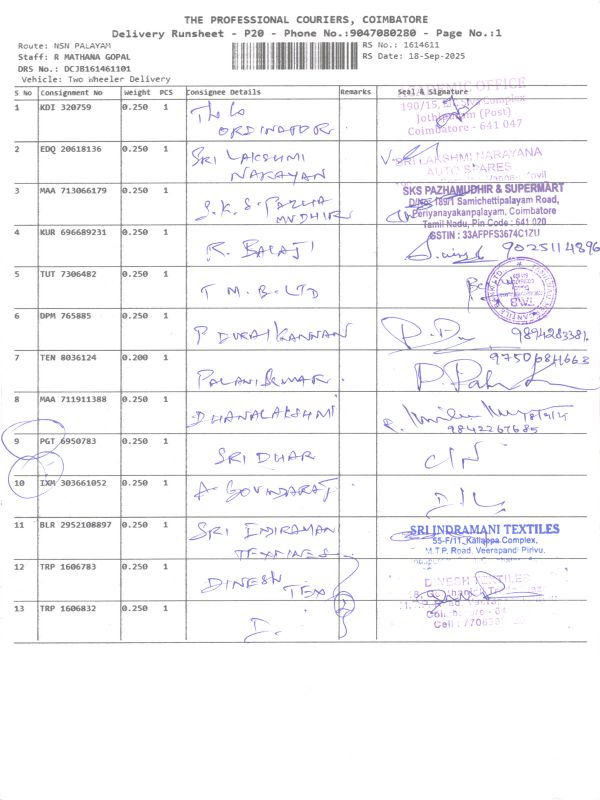 THE PROFESSIONAL COURIERS, COIMBATORE
Delivery Runsheet - P20 - Phone No.:9047080280 - Page No.:1
Route: NSN PALAYAM
RS No.: 1614611
Staff: R MATHANA GOPAL
RS Date: 18-Sep-2025
DRS No.: DCJB161461101
Vehicle: Two Wheeler Delivery
S No Consignment No Weight PCS Consignee Details Remarks Seal & Signature
1 KDI 320759 0.250 1 The Co
ORDINATOR
OFFICE
Complex
(Post)
Coimbatore - 641 047
2 EDQ 20618136 0.250 1 SRI LAKSHMI
NARAYAN
SRI LAKSHMI NARAYANA
AUTO SPARES
3 MAA 713066179 0.250 1 S.K.S PAZHA
MUDHIR
SKS PAZHAMUDHIR & SUPERMART
D/No: 189/1 Samichettipalayam Road,
Periyanayakanpalayam, Coimbatore
Tamil Nadu, Pin Code : 641 020
GSTIN : 33AFPFS3674C1ZU
4 KUR 696689231 0.250 1 R. BALAJI 9025114896
5 TUT 7306482 0.250 1 T M.B. LTD
6 DPM 765885 0.250 1 P DURAI KANNAN
7 TEN 8036124 0.200 1 PALANI KUMAR
8 MAA 711911388 0.250 1 DHANALAKSHMI
9842267685
9 PGT 6950783 0.250 1 SRI DHAR
10 IXM 303661052 0.250 1 A GOVINDARAJ
11 BLR 2952108897 0.250 1 SRI INDIRAMANI
TEXTILES
SRI INDRAMANI TEXTILES
55-F/11, Kallappa Complex,
M.T.P. Road, Veerapandi Pirivu,
12 TRP 1606783 0.250 1 DINESH TEX
DINESH TEXTILES
13 TRP 1606832 0.250 1 D.